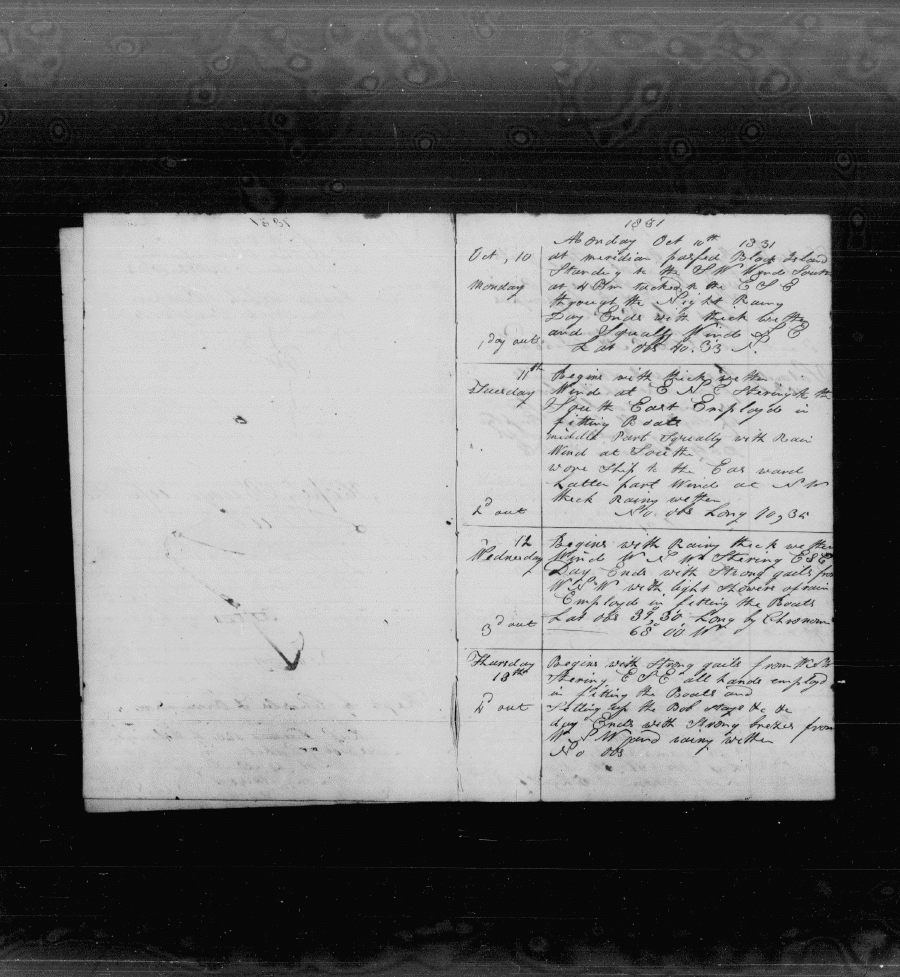 1831
Monday Oct 10th 1831
Oct, 10 at meridian passed Block Island
Standing to the S W Wynd South
Monday at 4 Pm tacked to the E S E
through the Night Rainy
Day Ends with thick wether
and Squally Winds S E
1 day out Lat obs 40.33 N.
11th Begins with thick wether
Tuesday Wind at E N E Stering to the
South East Employd in
fitting Boats
middle Part Squally with Rain
Wind at South
wore Ship to the Eas ward
Latter part Wind at N W
thick Rainy wether
2d out No obs Long 70,35
12 Begins with Rainy thick wether
Wednesday Wind W N W Stering E S E
Day Ends with Strong gails from
W N W with light Showers of rain
Employd in fitting the Boats
Lat obs 39,30 Long by Chronom
3d out 68 00 W
Thursday Begins with Strong gails from W N W
13th Stering E S E all hands employd
in fitting the Boats and
4 out Setting up the Bob Stays &c &c
day Ends with Strong brezes from
W N W and rainy wether
No obs